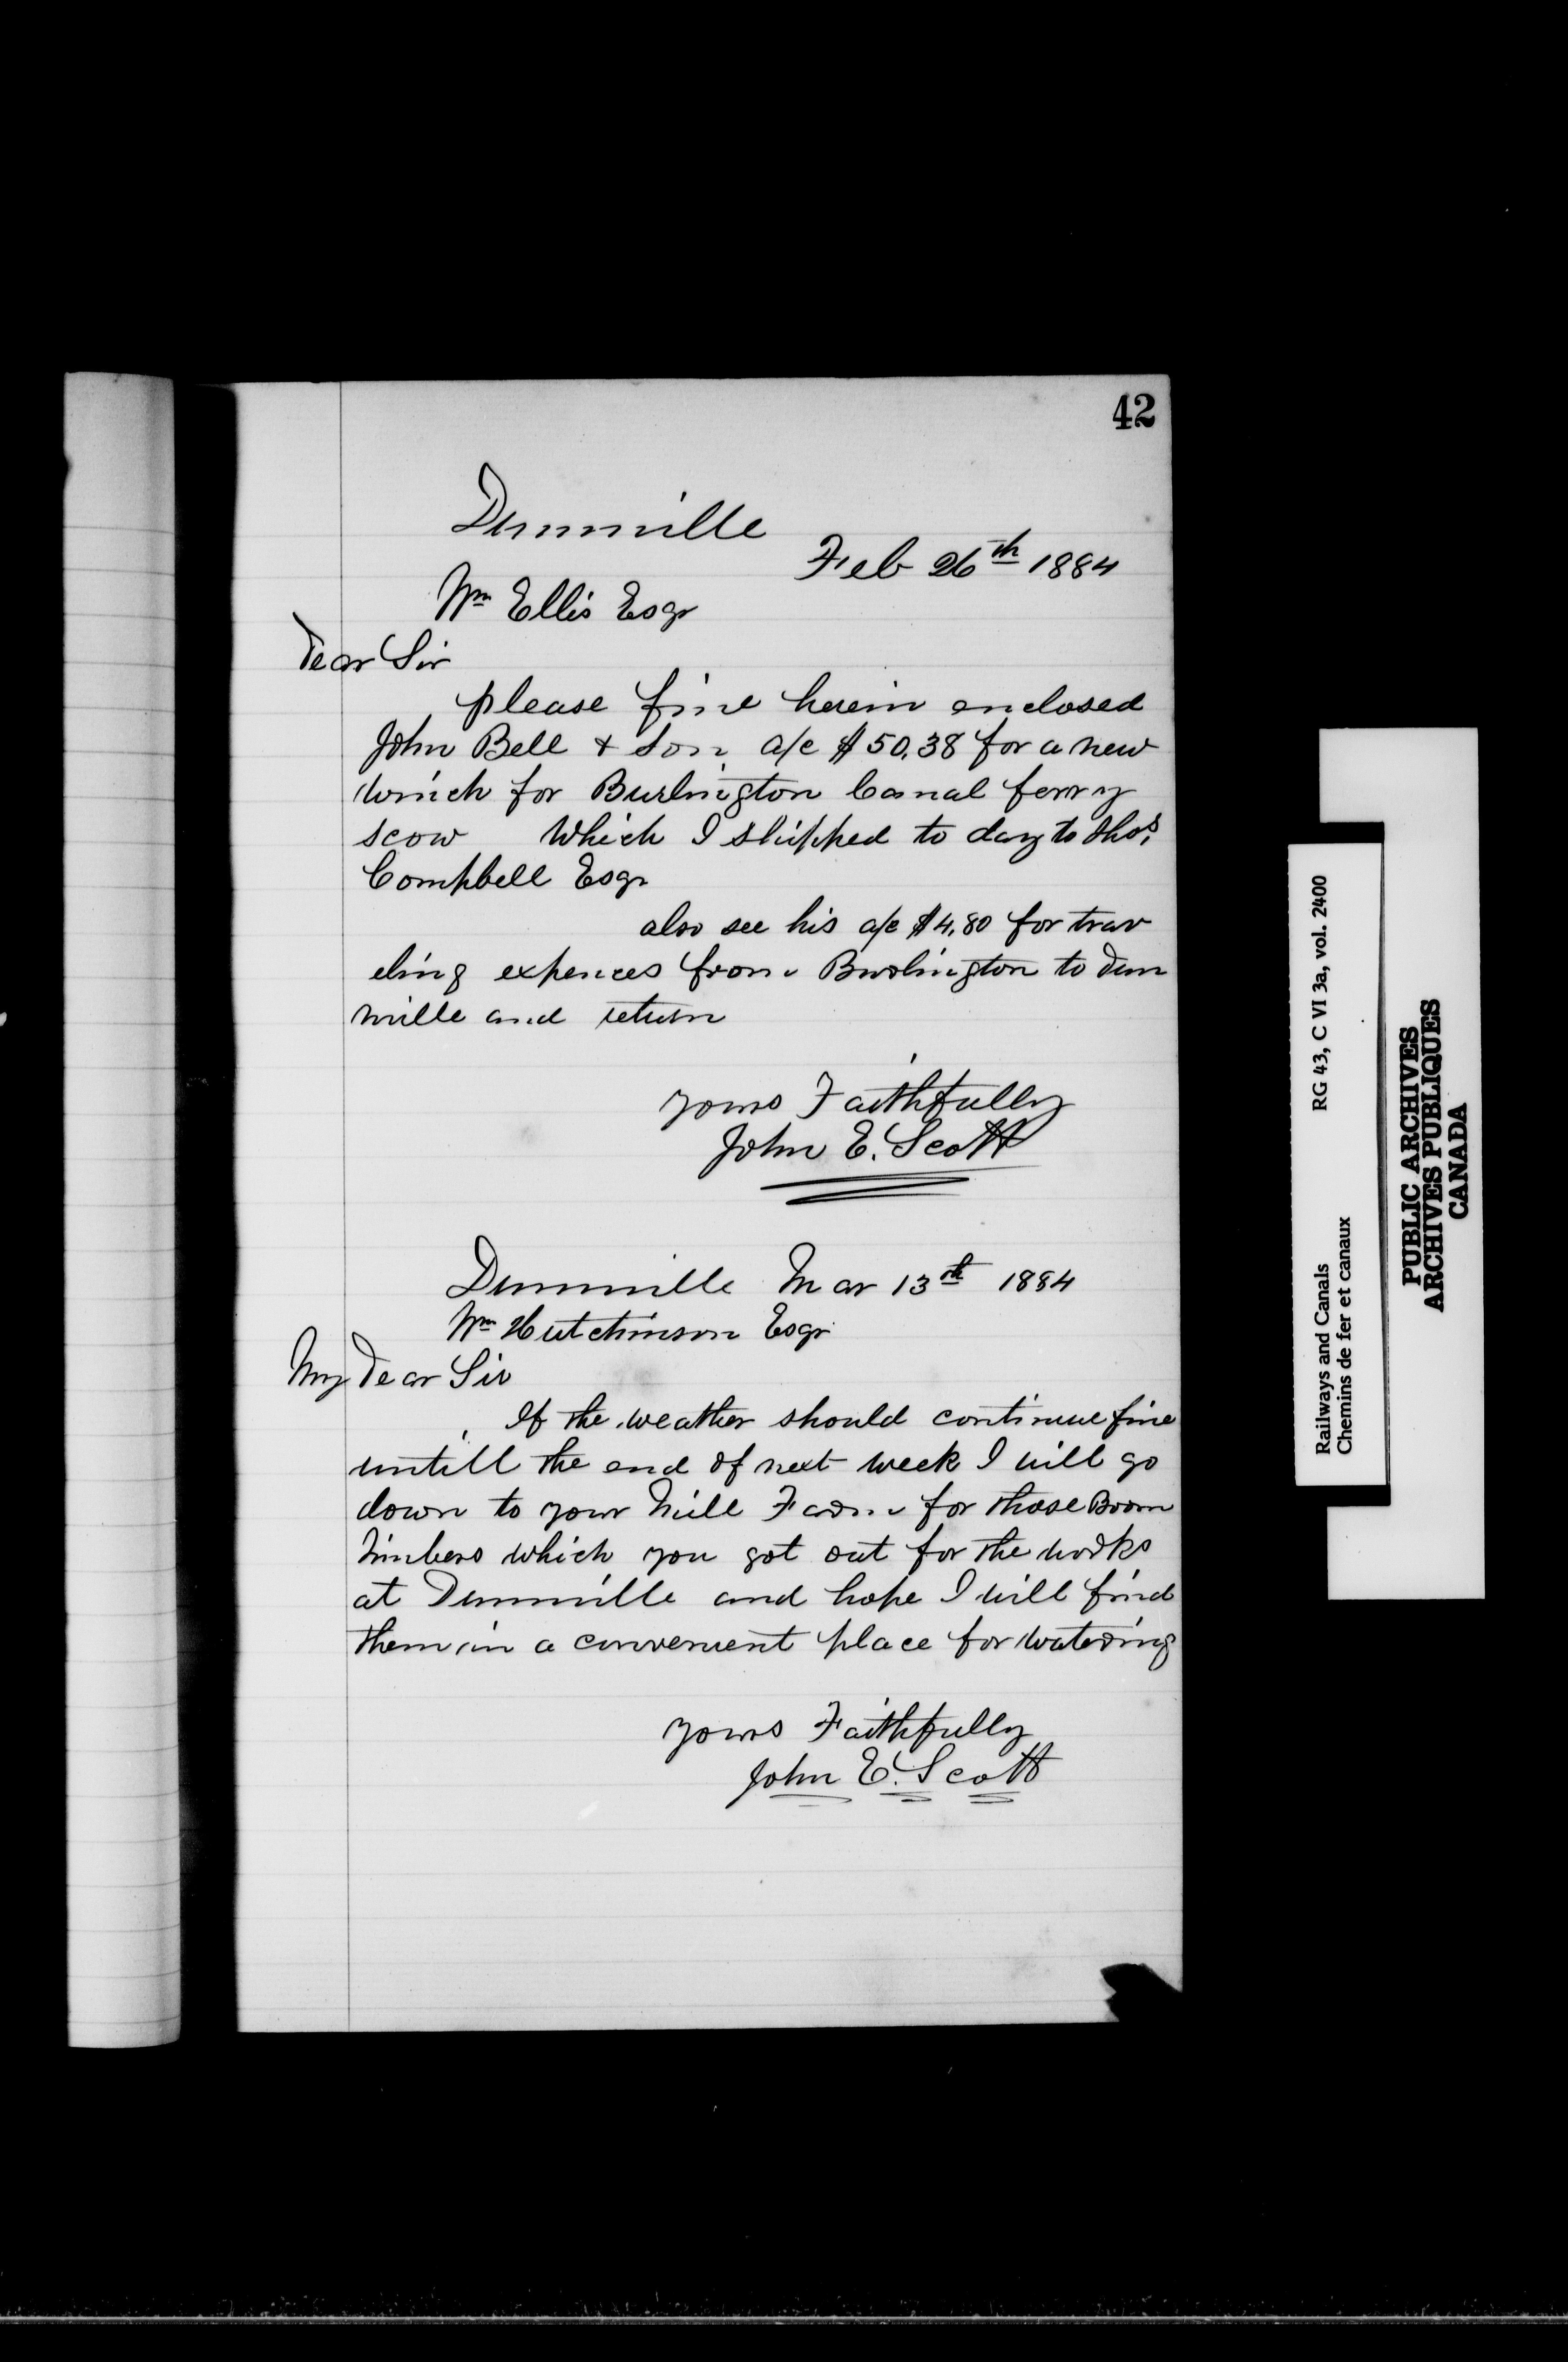 42
Dunnville
Feb 26th 1884
Wm Ellis Esqr
Dear Sir
please fine herein enclosed
John Bell & Son a/c $50.38 for a new
winch for Burlington Canal ferry
scow Which I shipped to day to Thos.
Campbell Esqr
also see his a/c $4.80 for trav
eling expences from Burlington to Dun
nville and return
yours Faithfully
John E. Scott
Dunnville Mar 13th 1884
Wm Hutchinson Esqr
My Dear Sir
If the weather should continue fine
untill the end of next week I will go
down to your Mill Farm for those Boom
timbers which you got out for the works
at Dunnville and hope I will find
them in a convenient place for watering
yours Faithfully
John E. Scott
Railways and Canals RG 43, C VI 3a, vol. 2400
Chemins de fer et canaux
PUBLIC ARCHIVES
ARCHIVES PUBLIQUES
CANADA